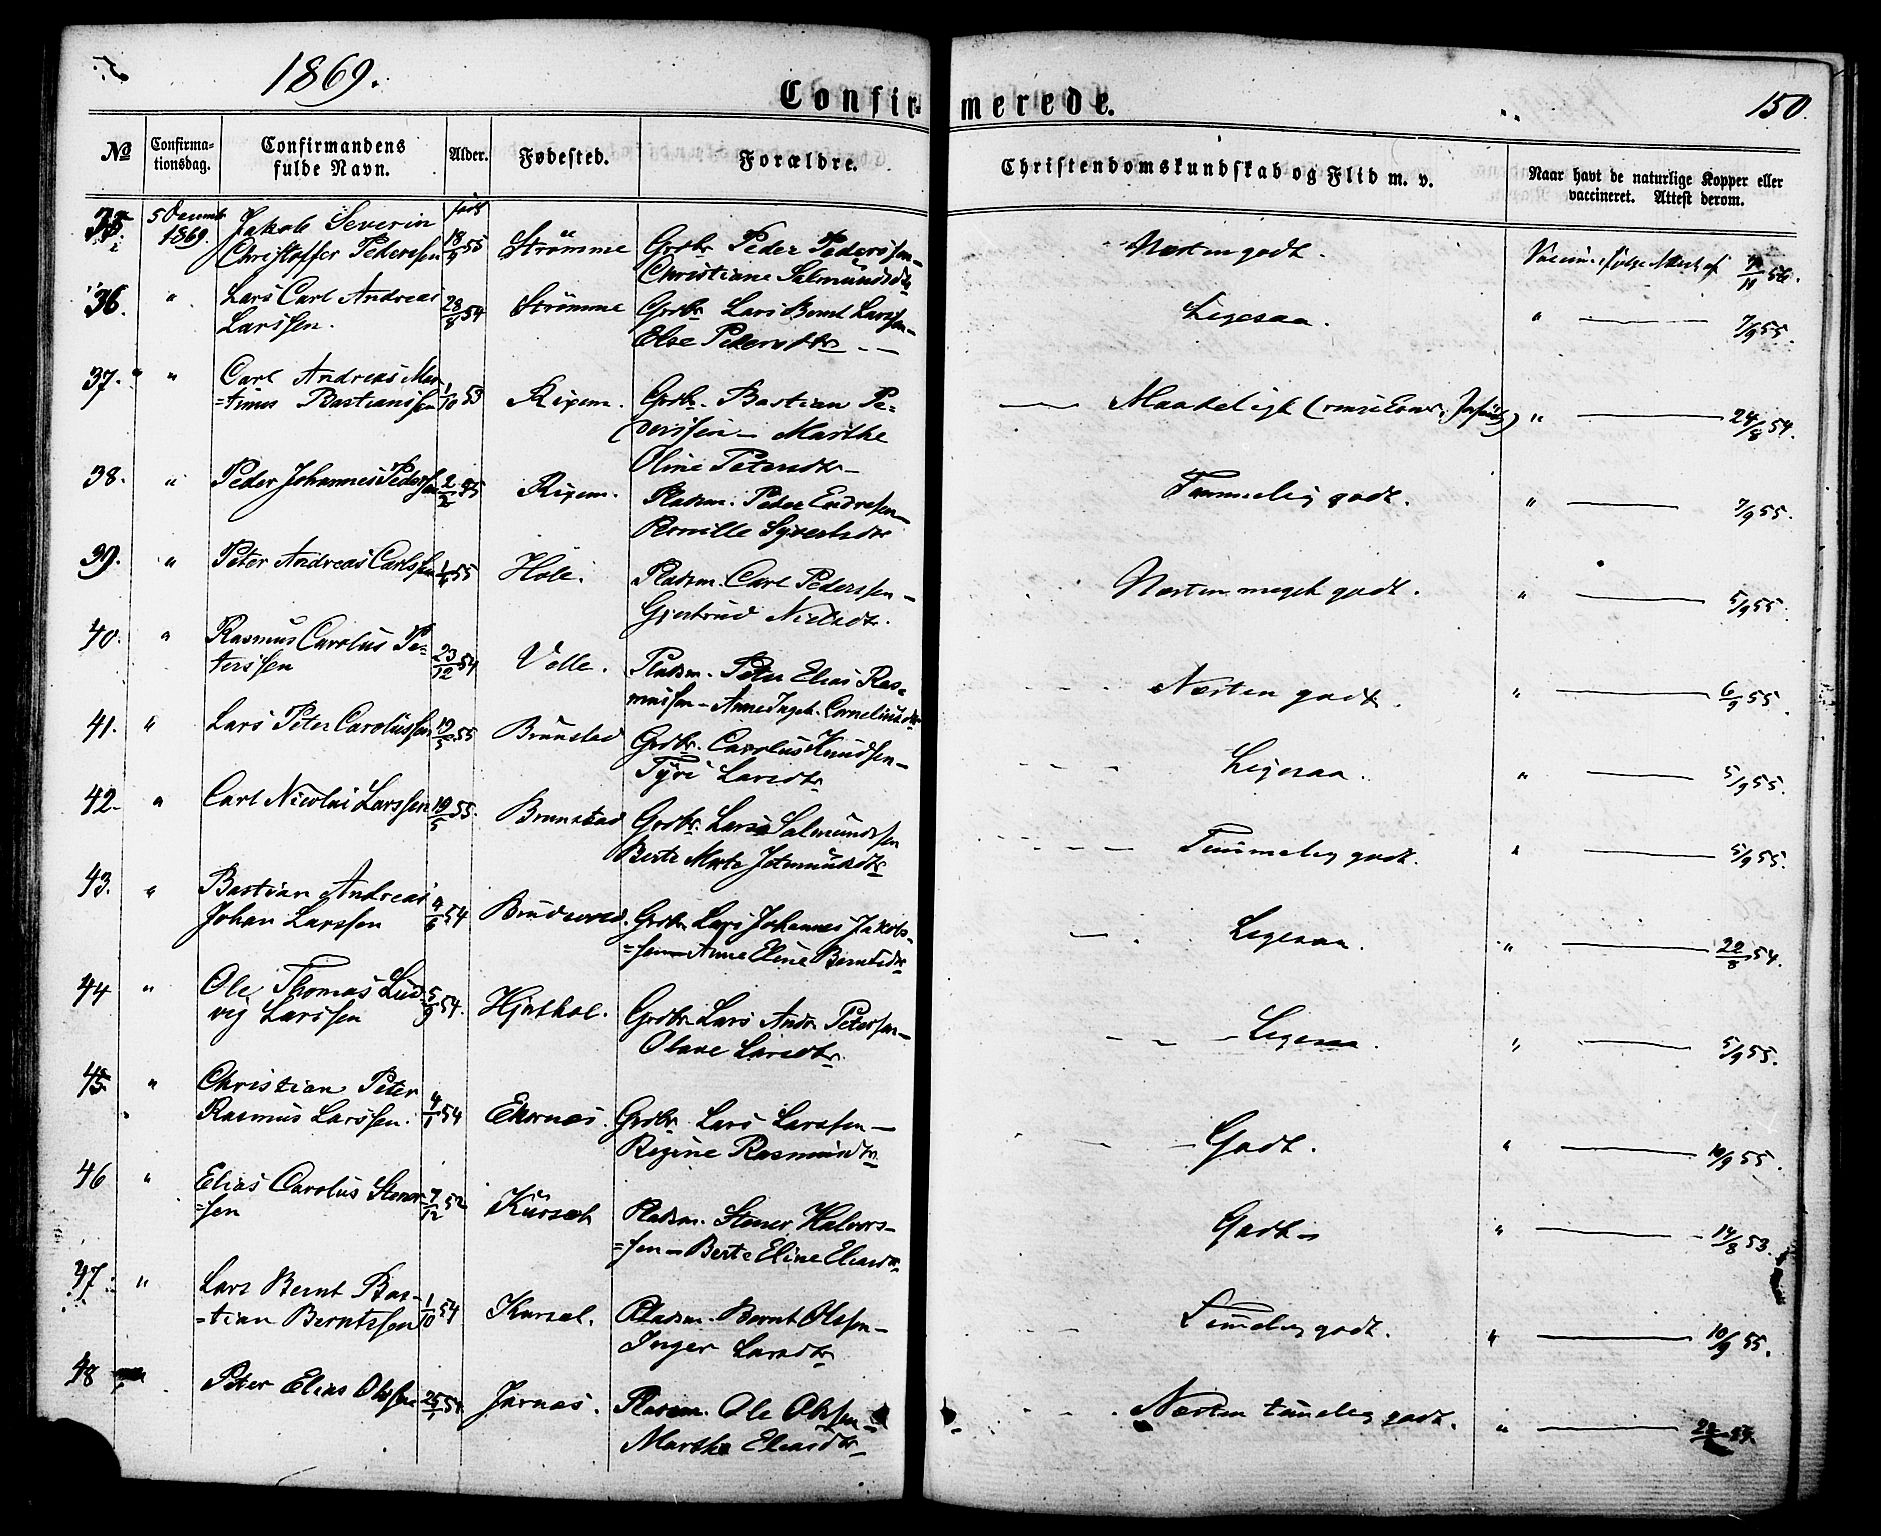 1869.
Confirmerede.
150
No
Confirma-
tionsdag.
Confirmandens
fulde Navn.
Alder.
Fødested.
Forældre.
Christendomskundskab og Flid m. v.
Naar havt de naturlige Kopper eller
vaccineret. Attest derom.
35. 5 Decemb. 1869. Jakob Severin
Christoffer Pederssen 18/9 55 Strømme Grdbr. Peder Pederssen –
Christiane Salmundsdtr Næsten godt.
36. " Lars Carl Andreas
Larssen. 28/8 54 Strømme Grdbr. Lars Bernt Larssen –
Else Pedersdtr – Ligesaa. " 7/9 55.
37. " Carl Andreas Mar-
=tinus Bastianssen 1/10 53 Grdbr. Bastian Pe-
derssen – Marthe
Oline Petersdtr – Maadeligt " 24/8 54.
38. " Peder Johannes Pederssen Pladsm. Peder Endresen –
Pernille Syvertsdtr Temmelig godt. " 7/9 55.
39. " Peter Andreas Carlssen Hole. Pladsm. Carl Pederssen –
Gjertrud Nielsdtr. Næsten meget godt. " 5/9 55.
40. " Rasmus Carolus Pe-
terssen 23/12 54 Velle. Pladsm. Peter Elias Ras-
mussen – Anne Ingeb. Corneliusdtr Næsten godt. " 6/9 55.
41. " Lars Peter Carolussen 19/5 55 Brunstad Grdbr. Carolus Knudsen –
Tyri Larsdtr Ligesaa. " 5/9 55.
42. " Carl Nicolai Larssen 19/5 55. Brunstad Grdbr. Lars Salmundsen
Berte Marte Jetmundsdtr Temmelig godt. " 5/9 55.
43. " Bastian Andreas
Johan Larssen 54 Grdbr. Lars Johannes Jakobs-
=sen – Anne Eline Berntsdtr Ligesaa. " 22/8 54.
44 " Ole Thomas Lud-
vig Larssen 5/9 54. Hjorthol. Grdbr. Lars Andr. Petersen –
Olave Larsdtr. Ligesaa. " 5/9 55.
45. " Christian Peter
Rasmus Larssen. 4/1 54 Ekornæs. Grdbr. Lars Larssen –
Regine Rasmusdtr. Godt. " 10/9 55.
46 " Elias Carolus Stener-
=sen 7/12 52 Kursæt Pladsm. Stener Halvors-
=sen – Berte Eline Eliasdtr. Godt – " 14/8 53.
47. " Lars Bernt Bas-
=tian Berntssen 1/10 54 Kursæt. Pladsm. Bernt Olssen –
Inger Larsdtr Temmelig godt. " 10/9 55.
48 Peter Elias Olssen Jarnæs. Pladsm. Ole Olssen –
Marthe Eliasdtr – Næsten temmelig godt. "